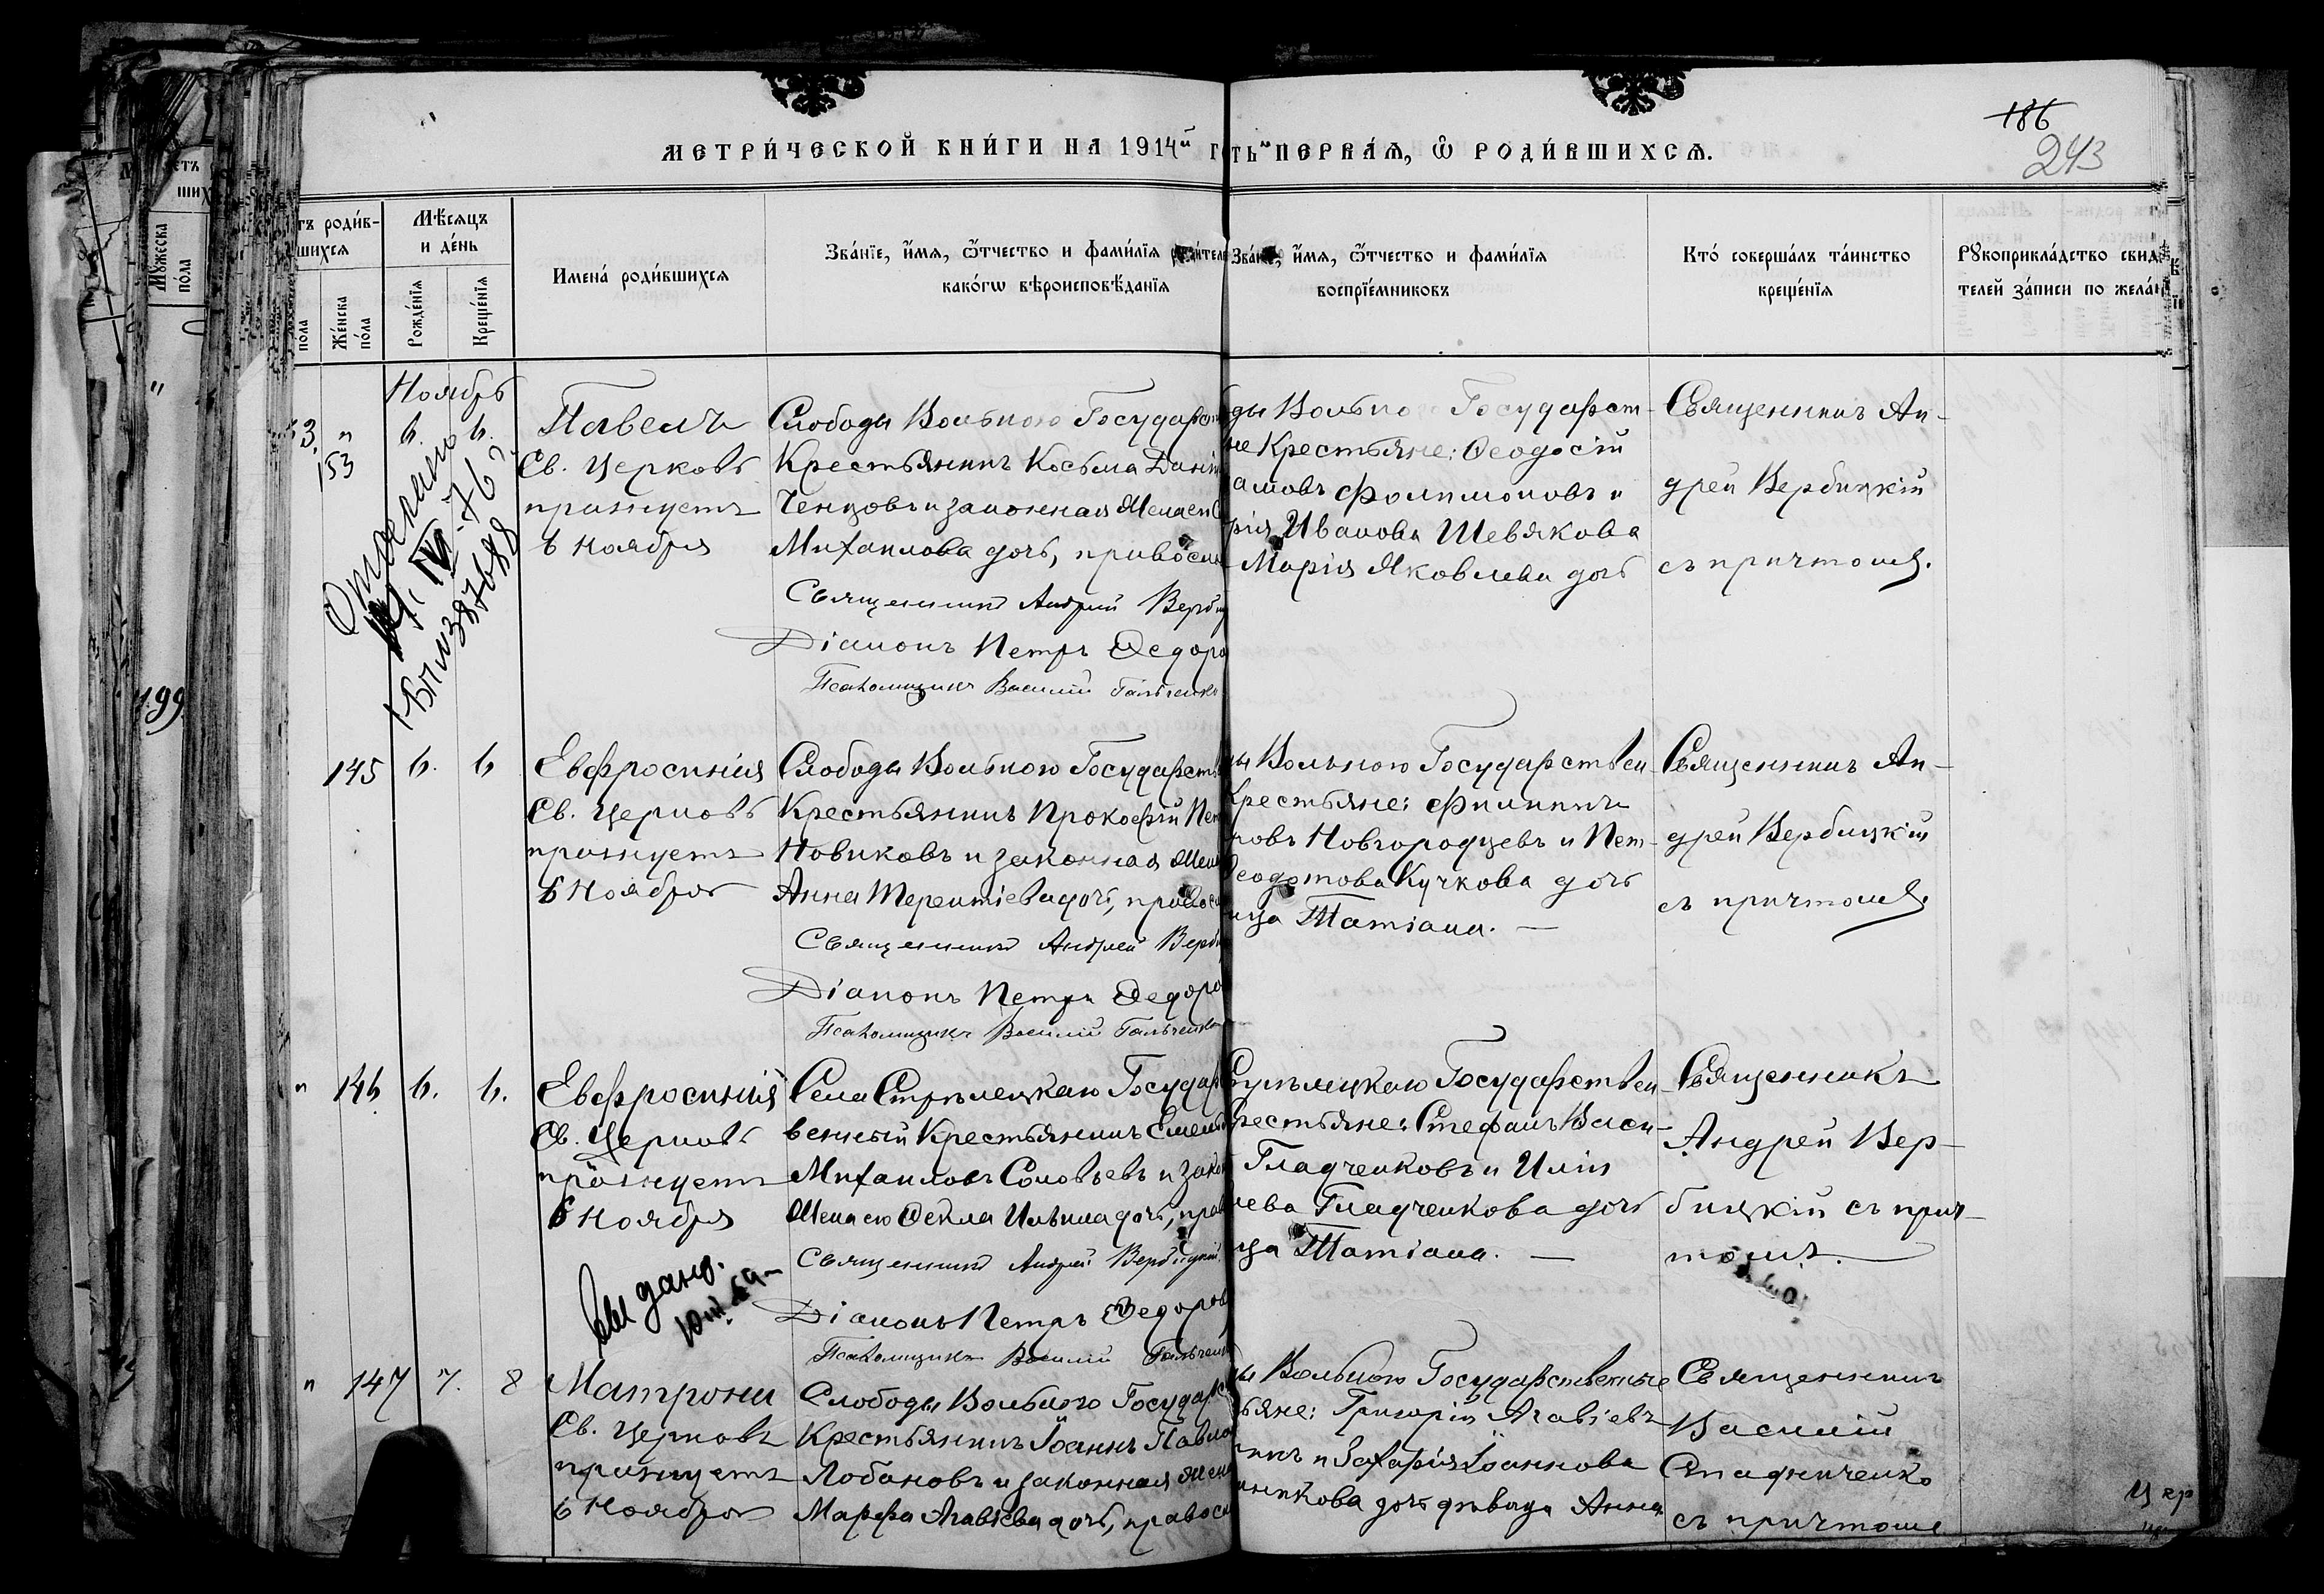 186
243
МЕТРИ́ЧЕСКОЙ КНИ́ГИ НА 1914й Г
ТЬ ПЕРВА́Я, Ѡ РОДИ́ВШИХСЯ.
тъ роди́в-
шихся
Мѣ́сяцъ
и де́нь
Имена̀ роди́вшихся
Зва́нїе, и́мя, ѻ́тчество и фами́лїя роди́теле
како́гѡ вѣроисповѣ́данїя
Зва́нїе, и́мя, ѻ́тчество и фами́лїя
воспрїе́мниковъ
Кто́ соверша́лъ та́инство
креще́нїя
Рꙋкоприкла́дство свидѣ
телей за́писи по жела́н
Мꙋ́жеска
по́ла
по́ла
Же́нска
по́ла
Рожде́нїя
Креще́нїя
Ноябрь
153
6.
6.
Павелъ
Св. Церковь
празнуетъ
6 Ноября
Слободы Вольного Государст
Крестьянинъ Косьма Дани
Ченцовъ и законная жена его
Михаилова дочь, правосла
Священникъ Андрей Верби
Діаконъ Петръ Ѳедоро
Псаломщикъ Василій Гальченко
ды Вольного Государст-
не Крестьяне: Ѳеодосій
амовъ Филимоновъ и
рія Иванова Шевякова
Марія Яковлева дочь
Священникъ Ан-
дрей Вербицкій
съ причтомъ.
199
145
6.
6
Евфросинія
Св. Церковь
празнуетъ
6 Ноября
Слободы Вольного Государств
Крестьянинъ Прокофій Пет
Новиковъ и законная жена
Анна Терентіева дочь, правос
Священникъ Андрей Верби
Діаконъ Петръ Ѳедоро
Псаломщикъ Василій Гальченко
ды Вольного Государствен-
Крестьяне: Филиппъ
ровъ Новгородцевъ и Пет-
Ѳеодотова Кучкова дочь
ица Татіана. —
Священникъ Ан-
дрей Вербицкій
съ причтомъ.
146
6.
6.
Евфросинія
Св. Церковь
празнуетъ
6 Ноября
Села Стрѣлецкаго Государ
венный Крестьянинъ Емель
Михаиловъ Соловьевъ и закон
Жена его Ѳекла Ильина дочь, прав
Священникъ Андрей Вербицкій
Діаконъ Петръ Ѳедоров
Псаломщикъ Василій Гальченко
Стрѣлецкаго Государствен-
Крестьяне: Стефанъ Васи-
Гладченковъ и Илія
чева Гладченкова дочь
ица Татіана. —
Священникъ
Андрей Вер-
бицкій съ прич-
томъ.
Выдано.
147
7.
8
Матрона
Св. Церковь
празнуетъ
6 Ноября
Слободы Вольного Государс
Крестьянинъ Іоаннъ Павло
Лобановъ и законная жена
Марфа Агавіева дочь, правосл
ды Вольного Государственные
тьяне: Григорій Агавіевъ
никъ и Захарія Іоаннова
никова дочь дѣвица Анна
Священникъ
Василій
Спадниченко
съ причтомъ